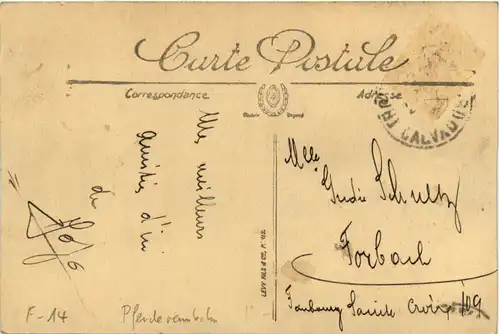 Carte Postale
Correspondance
Adresse
CALVADOS
Mes meilleurs
amitiés d'ici
de
Mlle
Schultz
Forbach
Faubourg Sainte Croix 109
LEVY FILS & Cie, P
F-14
Pferderennbahn